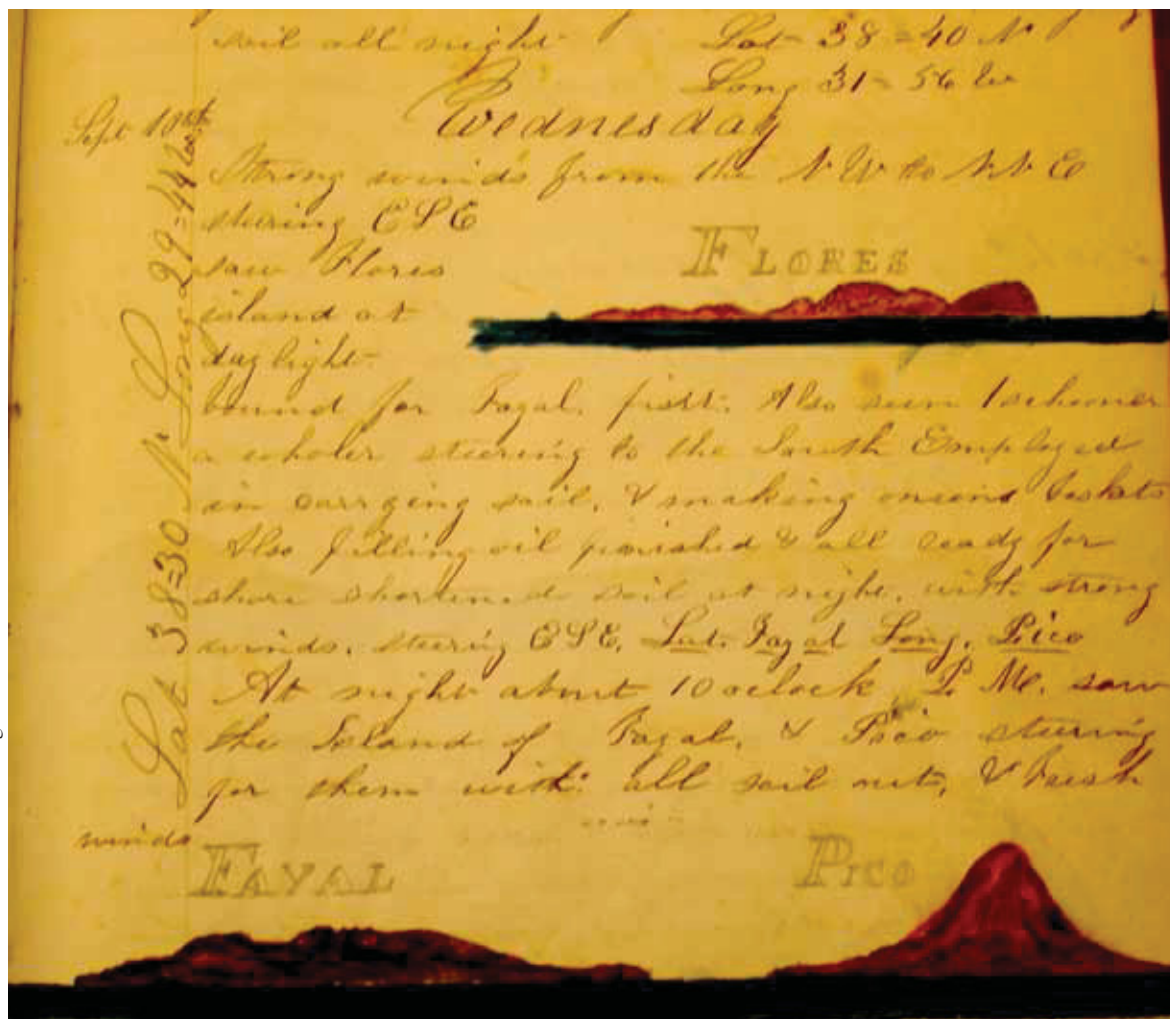 sail all night
Lat 38=40 N
Long 31=56 W
Sept 10th
Wednesday
Strong winds from the N W to N N E
stering E S E
FLORES
saw Flores
island at
daylight
bound for Fayal. first. Also seen 1 schooner
a whaler steering to the South Employed
in carrying sail, & making onions baskets
Also filling oil finished & all ready for
shore shortened sail at night, with strong
winds. steering E S E. Lat. Fayal Long. Pico
At night about 10 oclock P. M. saw
the Island of Fayal, & Pico steering
for them with all sail out, & fresh
winds
Lat 38=30 N Long 29=44 W
FAYAL
PICO